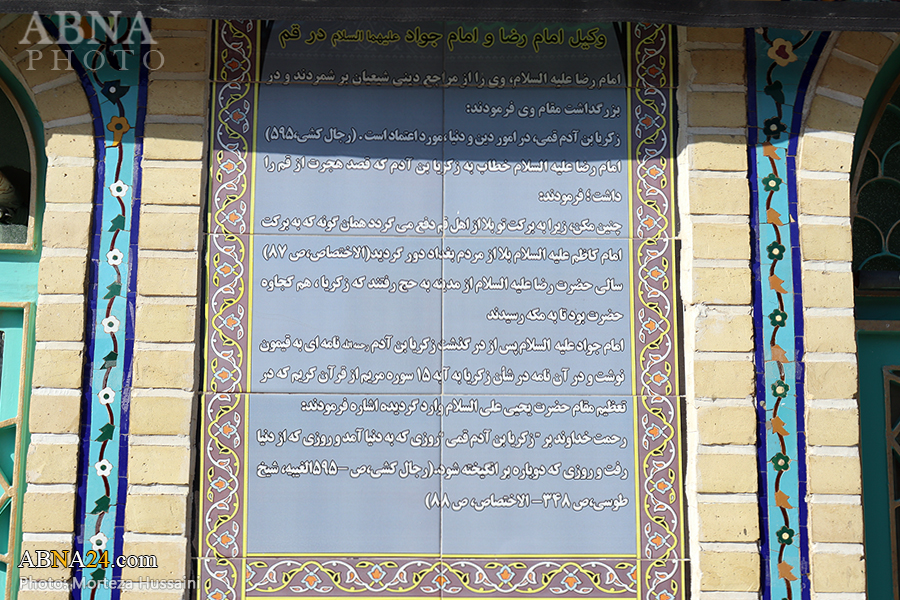 ABNA
PHOTO
وکیل امام رضا و امام جواد علیهما السلام در قم
امام رضا علیه السلام، وی را از مراجع دینی شیعیان بر شمردند و در
بزرگداشت مقام وی فرمودند:
زکریا بن آدم قمی، در امور دین و دنیا، مورد اعتماد است. (رجال کشی،۵۹۵)
امام رضا علیه السلام خطاب به زکریا بن آدم که قصد هجرت از قم را
داشت؛ فرمودند:
چنین مکن، زیرا به برکت تو بلا از اهل قم دفع می گردد همان گونه که به برکت
امام کاظم علیه السلام بلا از مردم بغداد دور گردید(الاختصاص،ص ۸۷)
سالی حضرت رضا علیه السلام از مدینه به حج رفتند که زکریا ، هم کجاوه
حضرت بود تا به مکه رسیدند
امام جواد علیه السلام پس از در گذشت زکریا بن آدم رحمه الله نامه ای به قیمون
نوشت و در آن نامه در شأن زکریا به آیه ۱۵ سوره مریم از قرآن کریم که در
تعظیم مقام حضرت یحیی علی السلام وارد گردیده اشاره فرمودند:
رحمت خداوند بر "زکریا بن آدم قمی "روزی که به دنیا آمد و روزی که از دنیا
رفت و روزی که دوباره بر انگیخته شود.(رجال کشی،ص -۵۹۵الغیبه، شیخ
طوسی،ص ۳۴۸- الاختصاص، ص ۸۸)
ABNA24.com
Photo: Morteza Hussaini